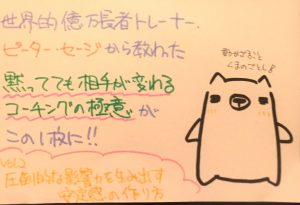 世界的億万長者トレーナー、
ピーター・セージから教わった
黙ってても相手が変わる
コーチングの極意が
この1枚に!!
Vol.2
圧倒的な影響力を生み出す
安定感の作り方
動かざること
くまのごとし